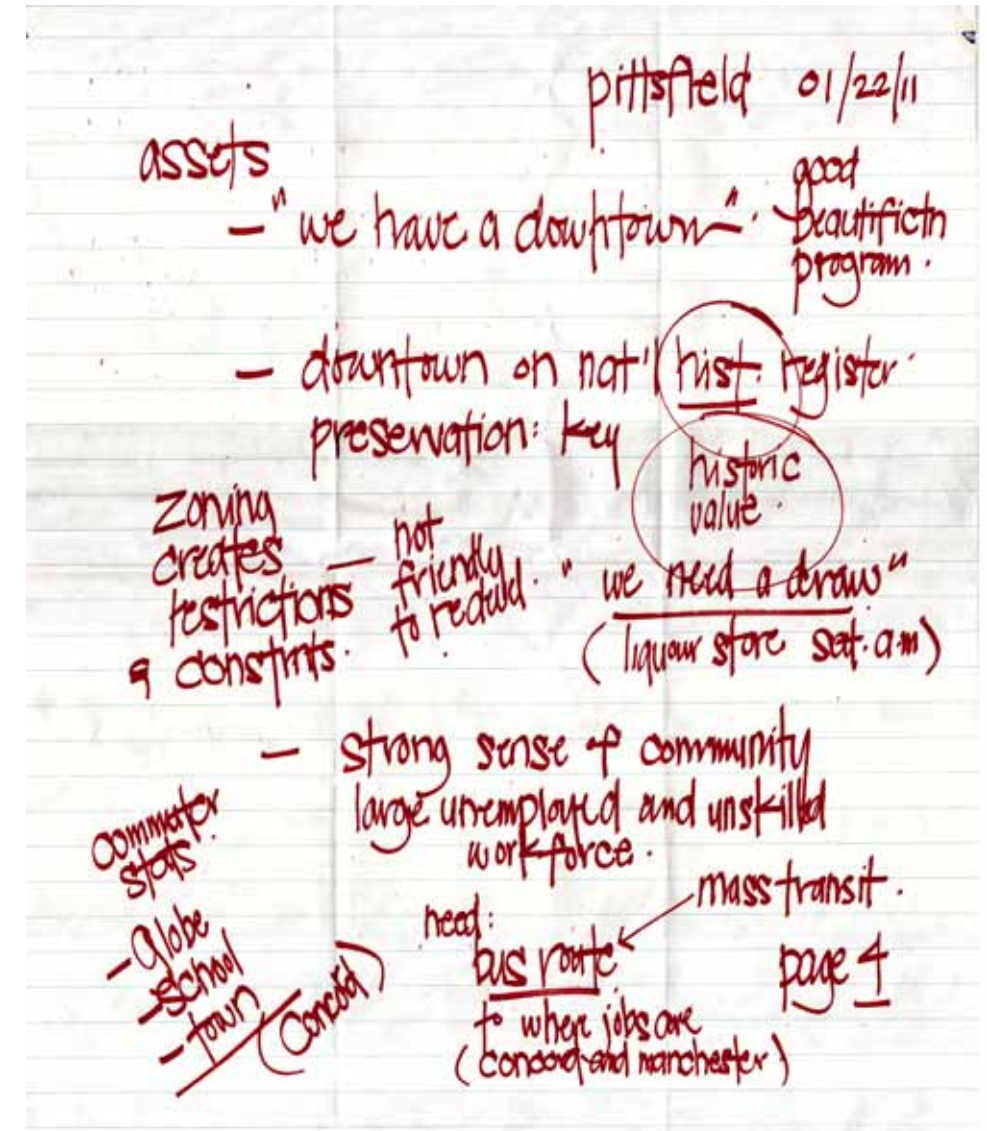 pittsfield 01/22/11
assets
- "we have a downtown-". - good
beautifictn
program.
- downtown on nat'l hist. register.
preservation: key
historic
value.
zoning
creates
restrictions
& constrnts.
- not
friendly
to redevld.
"we need a draw"
(liquour store sat. a.m)
- strong sense of community
large unemployed and unskilled
workforce.
commuter
stats.
- globe
- school
- town
(concord)
mass transit.
need:
bus route
to where jobs are
(concord and manchester)
page 4